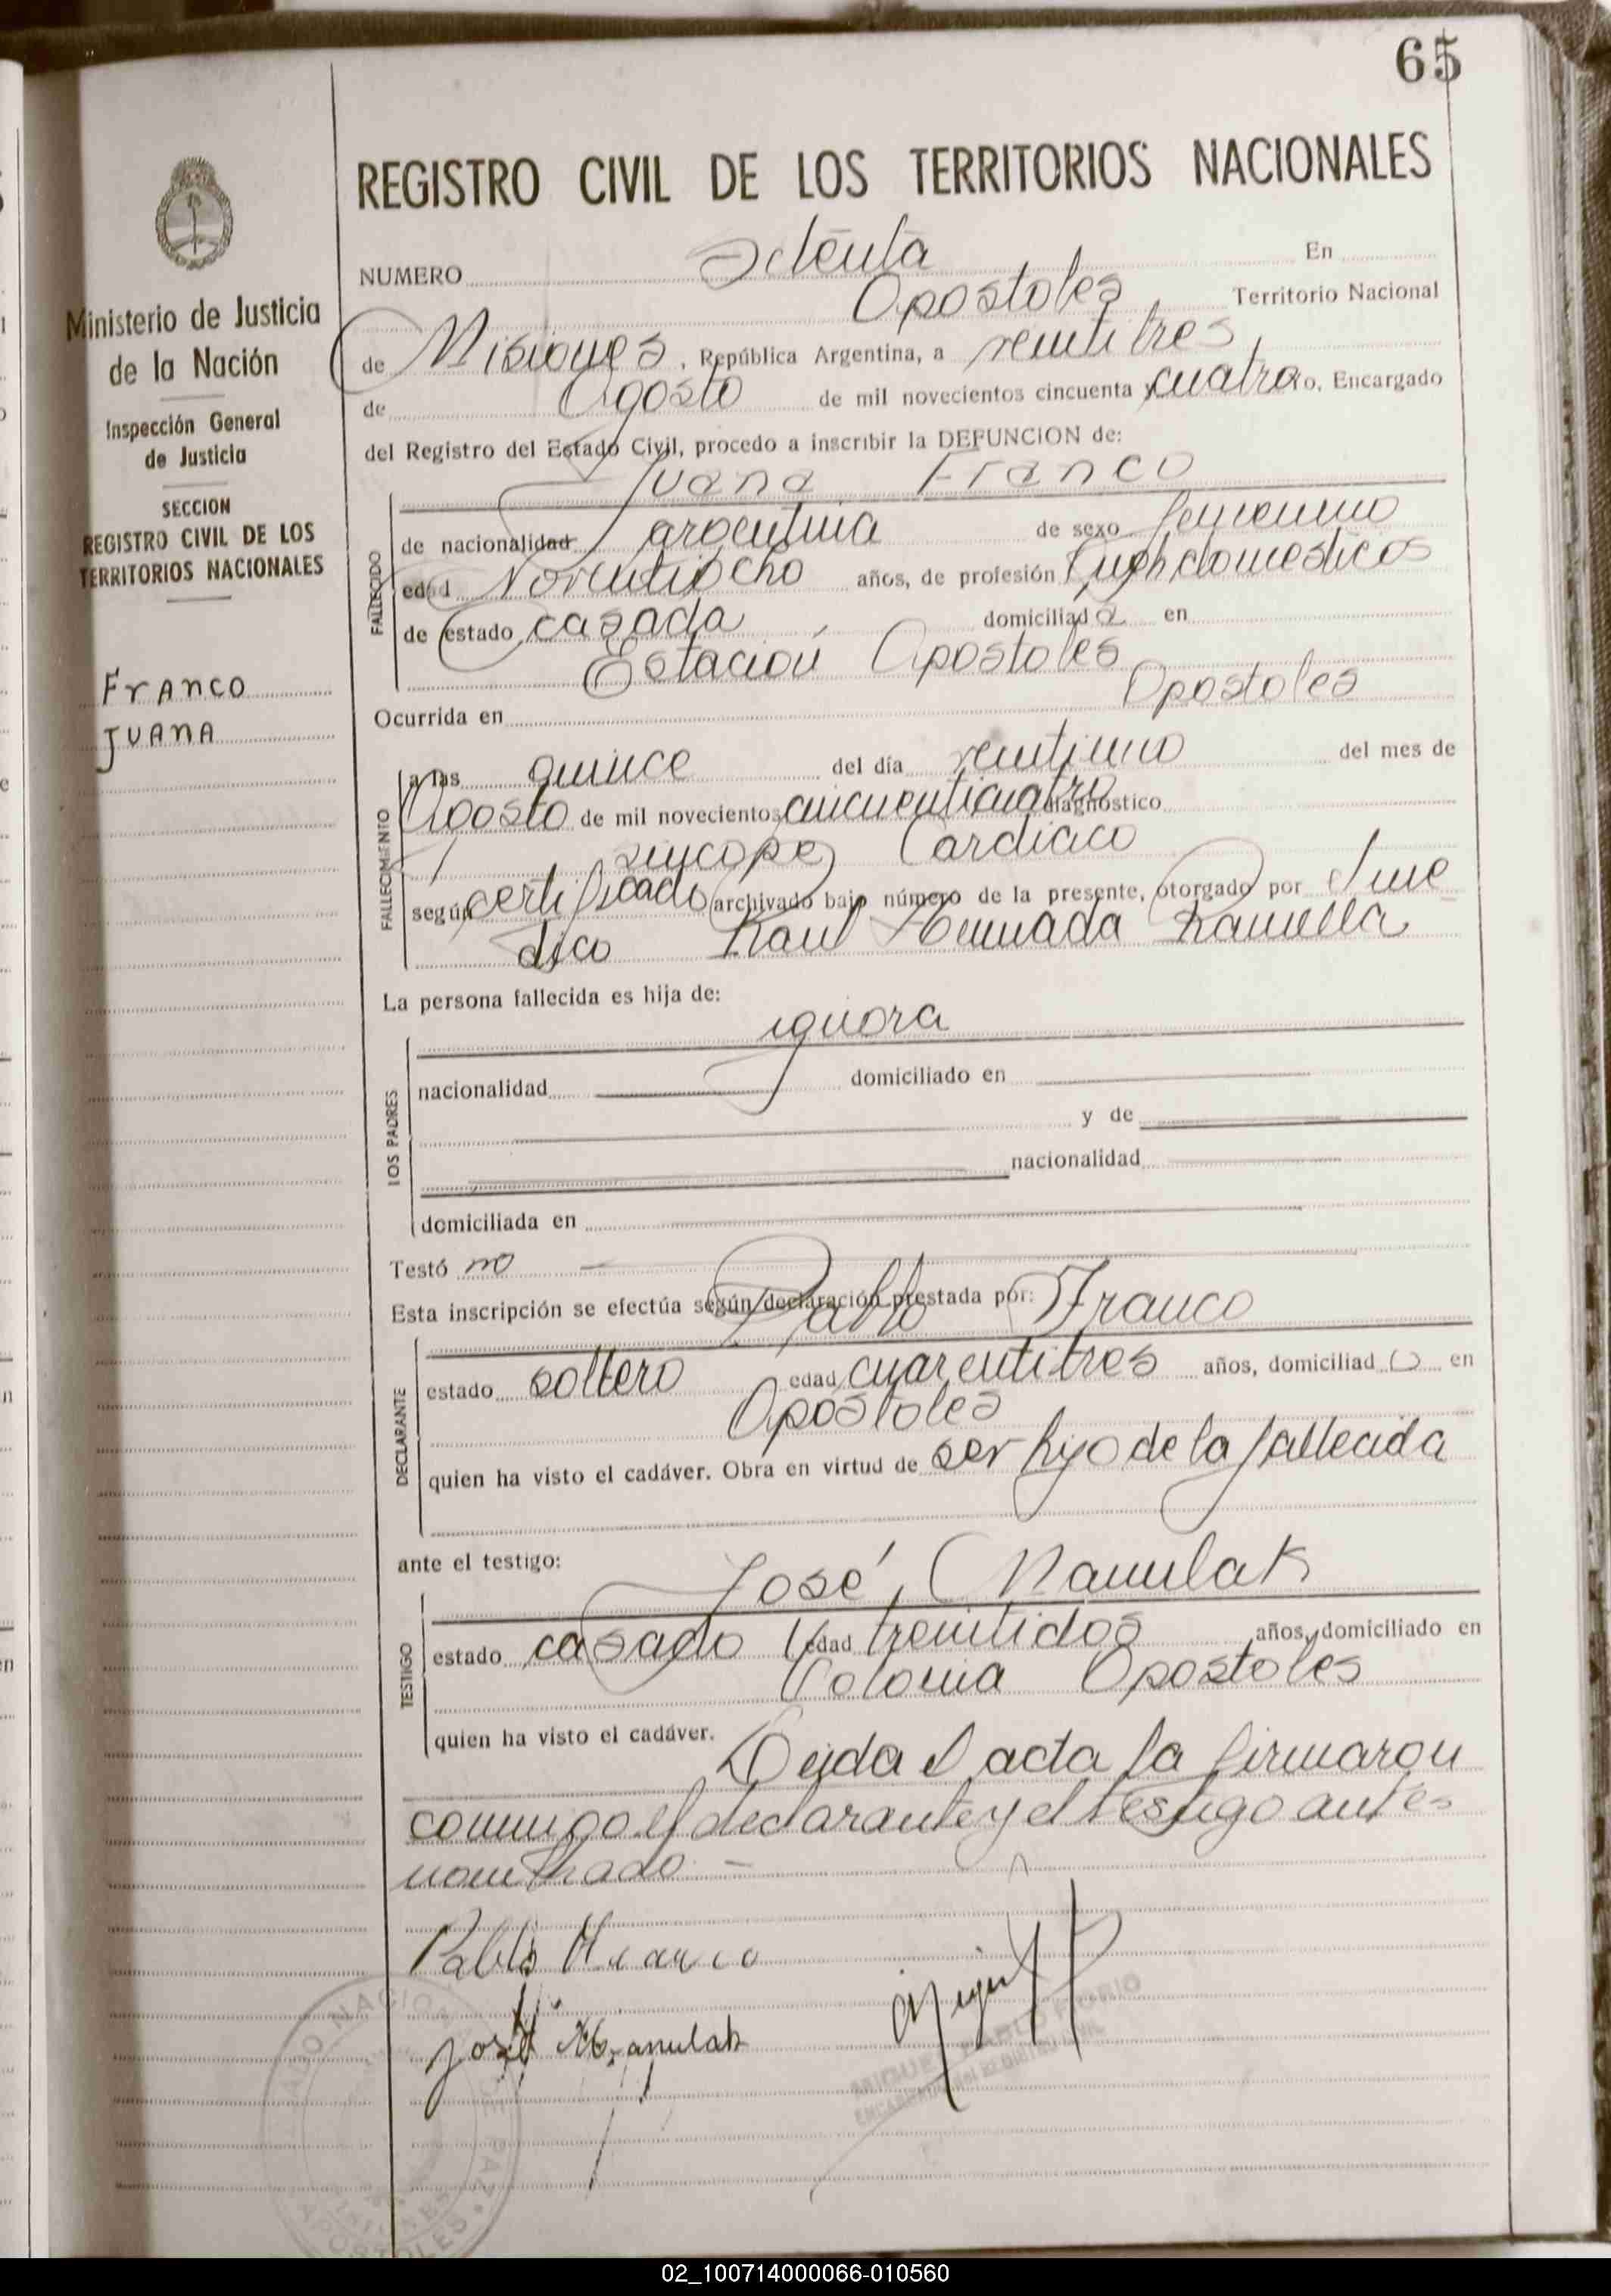 65
REGISTRO CIVIL DE LOS TERRITORIOS NACIONALES
NUMERO Setenta En
Apostoles Territorio Nacional
de Misiones, República Argentina, a veintitres
de Agosto de mil novecientos cincuenta y cuatro Yo, Encargado
del Registro del Estado Civil, procedo a inscribir la DEFUNCION de:
Juana Franco
FALLECIDO
de nacionalidad argentina de sexo femenino
edad Noventiocho años, de profesión domesticos
de estado casada domiciliada en
Estación Apostoles
Ocurrida en Apostoles
FALLECIMIENTO
a las quince del día veintiuno del mes de
Agosto de mil novecientos cincuenticuatro diagnóstico
síncope Cardiaco
según certificado archivado bajo número de la presente, otorgado por el me
dico Raul Ramella
La persona fallecida es hija de:
ignora
LOS PADRES
nacionalidad domiciliado en
y de
nacionalidad
domiciliada en
Testó no
Esta inscripción se efectúa según declaración prestada por: Pablo Franco
DECLARANTE
estado soltero edad cuarentitres años, domiciliado en
Apóstoles
quien ha visto el cadáver. Obra en virtud de ser hijo de la fallecida
ante el testigo:
José Hanulak
TESTIGO
estado casado edad treintidos años, domiciliado en
Colonia Apostoles
quien ha visto el cadáver. Leida el acta la firmaron
conmigo el declarante y el testigo antes
nombrado.-
Pablo Franco
José Hanulak
Ministerio de Justicia
de la Nación
Inspección General
de Justicia
SECCION
REGISTRO CIVIL DE LOS
TERRITORIOS NACIONALES
FrAnco
JUAnA
02_100714000066-010560